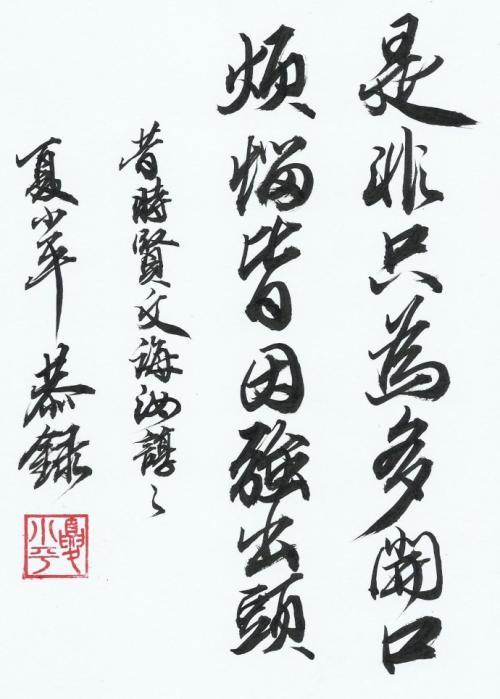 是非只為多開口
煩惱皆因強出頭
昔時賢文誨汝諄〻
夏小平 恭錄
夏小平